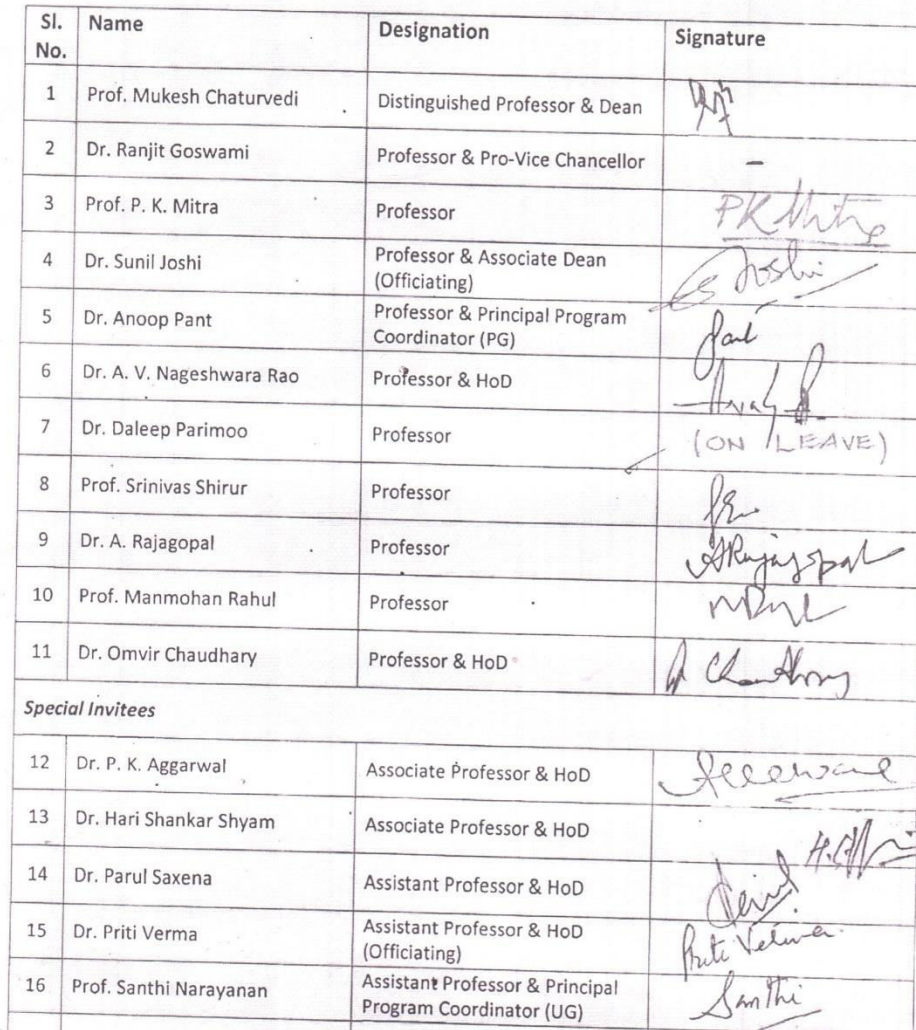 Sl. No. Name Designation Signature
1 Prof. Mukesh Chaturvedi Distinguished Professor & Dean
2 Dr. Ranjit Goswami Professor & Pro-Vice Chancellor -
3 Prof. P. K. Mitra Professor PK Mitra
4 Dr. Sunil Joshi Professor & Associate Dean (Officiating) Joshi
5 Dr. Anoop Pant Professor & Principal Program Coordinator (PG)
6 Dr. A. V. Nageshwara Rao Professor & HoD
7 Dr. Daleep Parimoo Professor (ON LEAVE)
8 Prof. Srinivas Shirur Professor
9 Dr. A. Rajagopal Professor ARajagopal
10 Prof. Manmohan Rahul Professor
11 Dr. Omvir Chaudhary Professor & HoD
Special Invitees
12 Dr. P. K. Aggarwal Associate Professor & HoD
13 Dr. Hari Shankar Shyam Associate Professor & HoD
14 Dr. Parul Saxena Assistant Professor & HoD
15 Dr. Priti Verma Assistant Professor & HoD (Officiating)
16 Prof. Santhi Narayanan Assistant Professor & Principal Program Coordinator (UG) Santhi